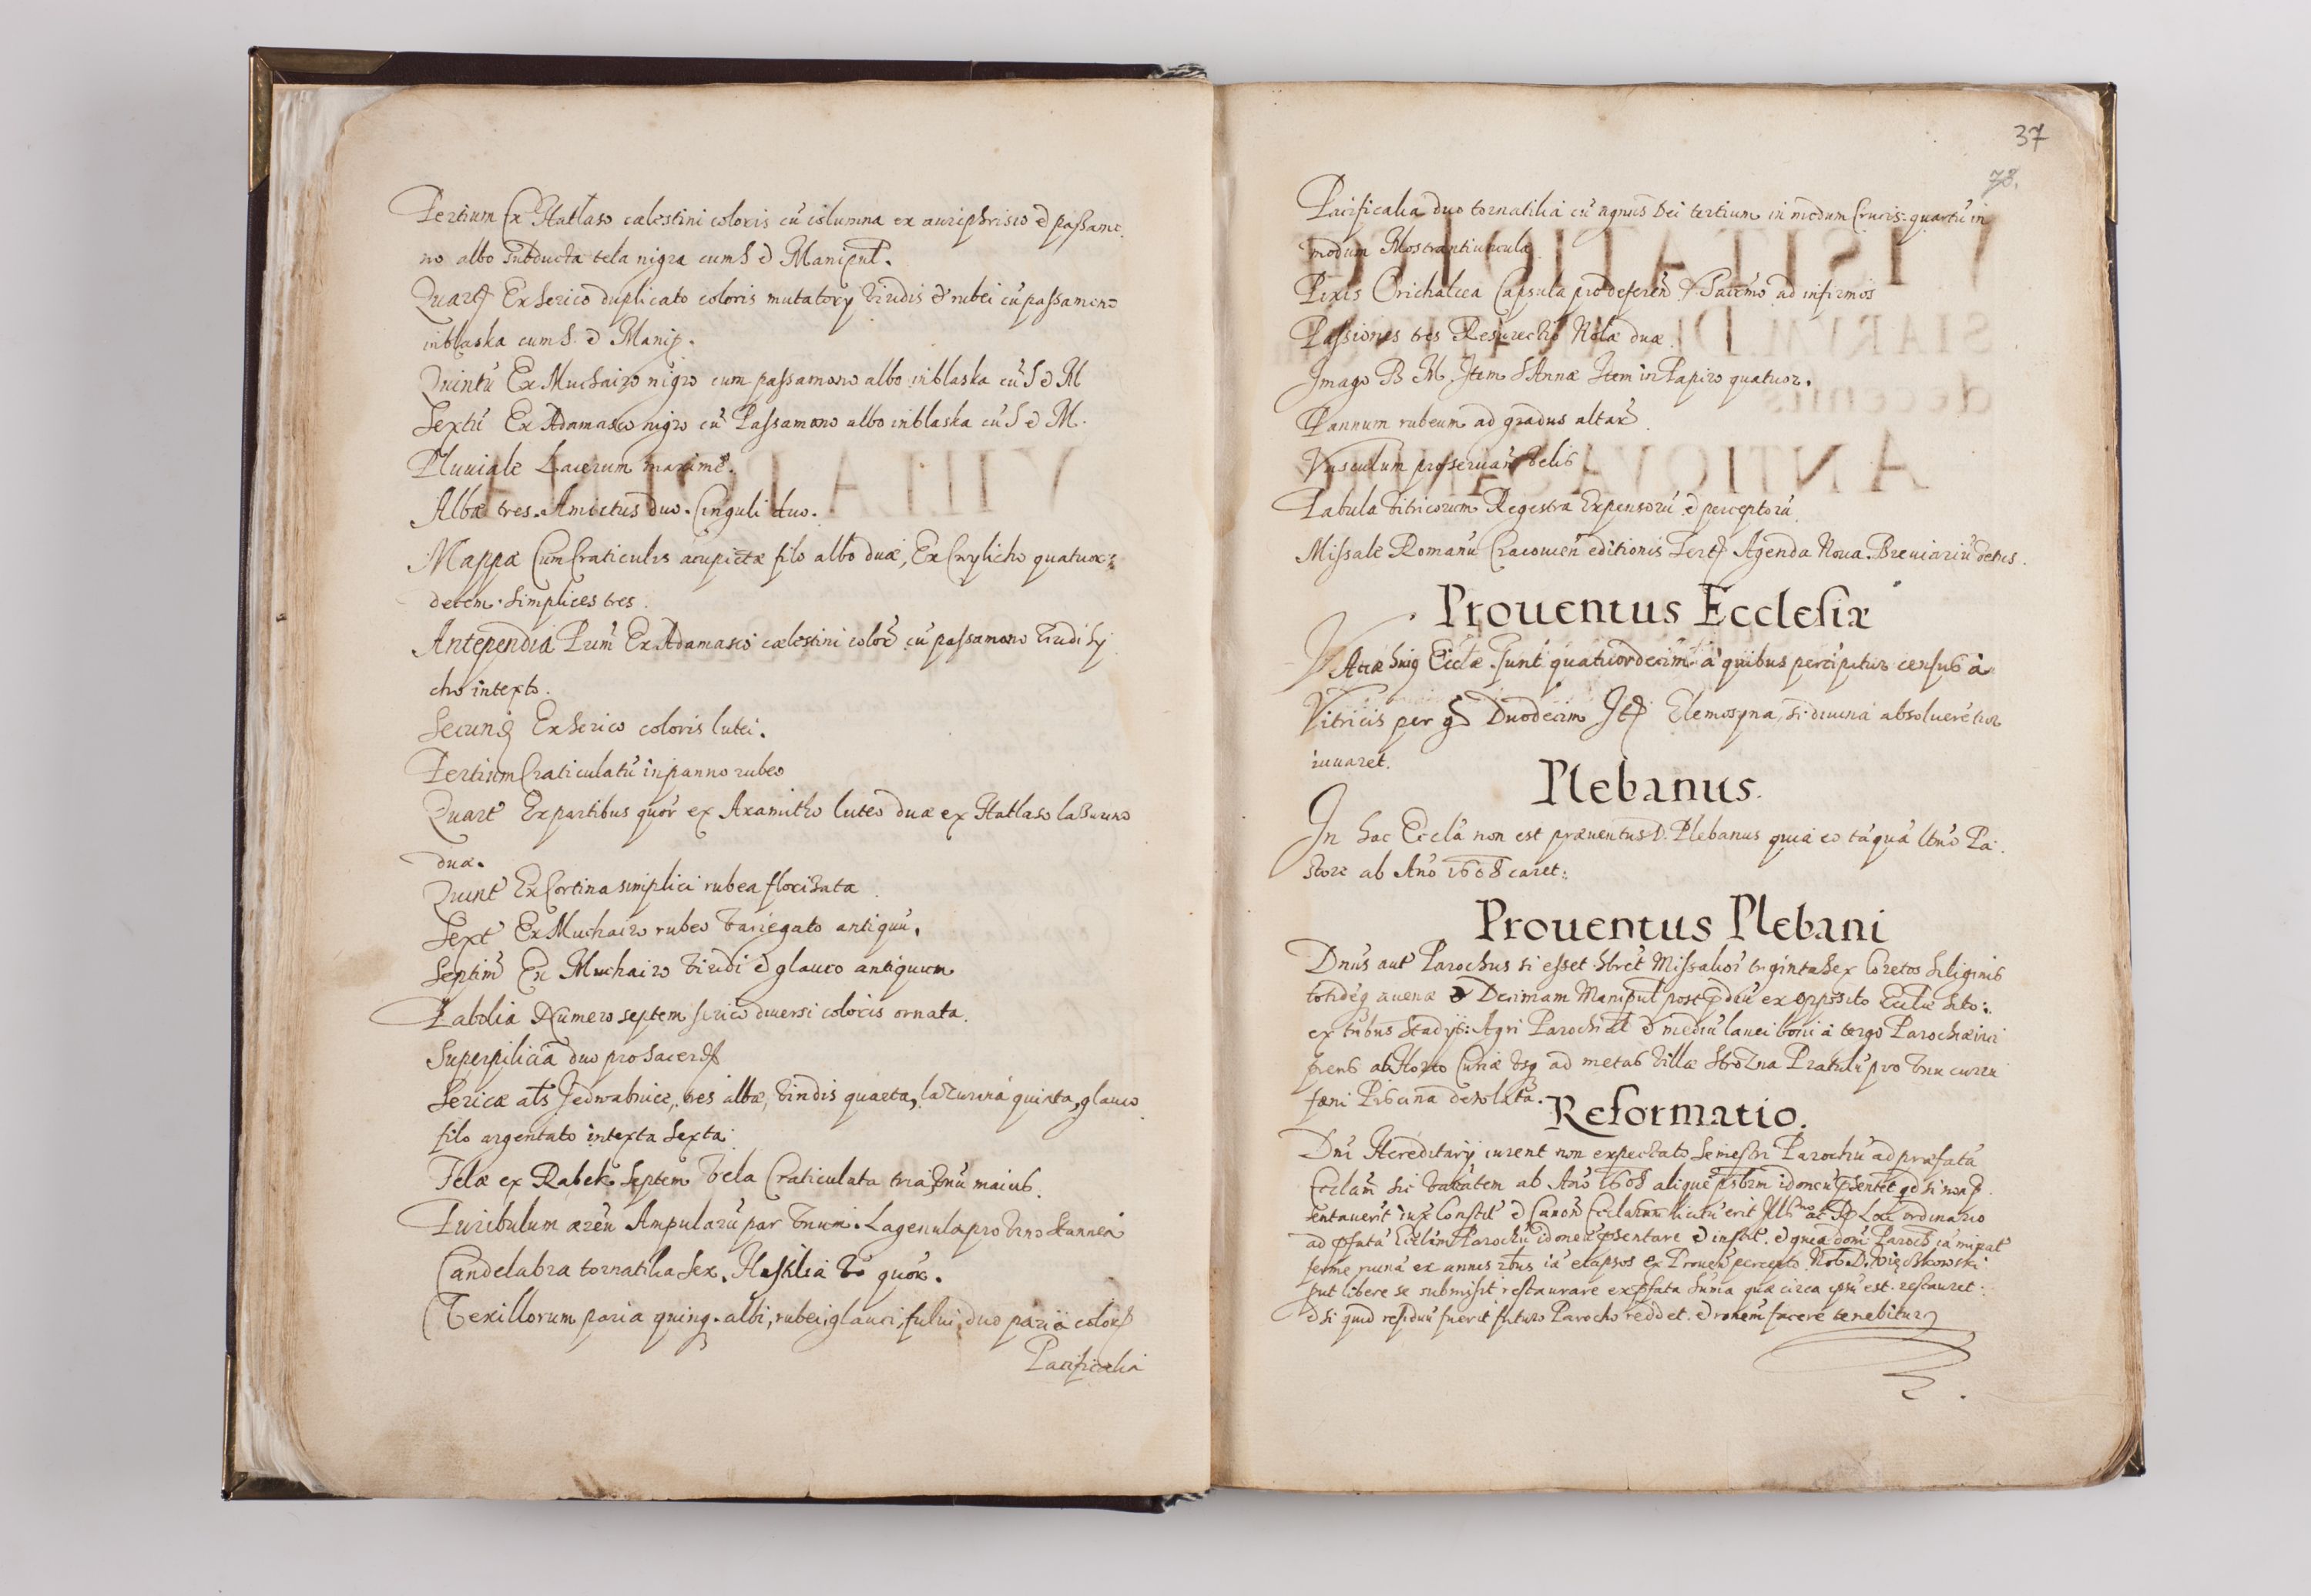 Tertium Ex Hatlaso cælestini coloris cū columna ex auriphrisio & passamo
no albo subducta tela nigra cum S & Manipul.
Quart Ex Serico duplicato coloris mutatorÿ viridis & rubei cū passamono
inblaska cum S. & Manip.
Quintū Ex Muchairo nigro cum passamono albo inblaska cū S & M
Sextū Ex Adamasco nigro cū Passamono albo inblaska cū S & M.
Pluuiale Lacerum maxime.
Albæ tres. Amictus duo. Cinguli duo.
Mappæ Cum Craticulis acupictæ filo albo duæ, Ex Cwylicho quatuor
decem. Simplices tres.
Antependia Prim Ex Adamasco cælestini color cū passamono viridi
cho intexto.
Secund Ex Serico coloris lutei.
Tertium Craticulatū in panno rubeo
Quart Ex partibus quor ex Axamitho luteo duæ ex Hatlaso lasurino
duæ.
Quint Ex Cortina simplici rubea
Sext Ex Muchairo rubeo variegato antiquū.
Septim Ex Muchairo viridi & glauco antiquum
Numero septem serico diuersi coloris ornata.
Superpilicia duo pro Sacerd
Sericæ als Jedwabnice, tres albæ, viridis quarta, lazurina quinta, glauco
filo argentato intexta Sexta.
Telæ ex Rabek Septem Vela Craticulata tria, vnū maius.
Turibulum æreū Ampularū par vnum. Lagenula pro vino Stannea
Candelabra tornatilia Sex. Hastilia quor.
Vexillorum paria quinq. albi, rubei, glauci, fului, duo paria color
Pacificalia
37
78.
Pacificalia duo tornatilia cū agnus Dei tertium in modum Crucis. quartū in
modum Mostrantiunculæ
Pixis Orichalcea Capsula pro deferen Sacrmo ad infirmos
Passiones tres Resurectio Nolæ duæ.
Imago B M. Item S Annæ Item in Papiro quatuor.
Pannum rubeum ad gradus altar.
Vasculum pro seruan
Tabula vitricorum Regestra Expensorū & perceptorū
Missale Romanū Cracouien editionis Agenda Noua. Breuiariū vetus.
Prouentus Ecclesiæ
Vaccæ huiq Ecclæ sunt quatuordecim à quibus percipitur census à
Vitricis per gs Duodecim It Elemosyna, si diuina absolueretur
iuuaret.
Plebanus.
In hac Eccla non est præuentus D. Plebanus quia eo tāquā vlt̄mo Pa
store ab Año 1608 caret.
Prouentus Plebani
Dnus aut Parochus si esset hret Missaliorū triginta sex Coretos Siliginis
totideq auenæ & Decimam Manipul post prædiū ex opposito Ecclæ sito:
ex tribus Stadÿs: Agri Parochial & mediū lanei boni à tergo Parochiæ inci
piens ab Horto Curiæ vsq ad metas Villæ Pratulū pro vnu curru
fæni Piscina desolata.
Reformatio.
Dni Hæreditarÿ curent non expectato Semestri Parochū ad præfatā
Ecclam sic vacātem ab Año 1608 aliquē prsbrm idoneū psentet qd si non p
sentauerit iux Constit & Canon licitū erit Illmo ac Loci ordinario
ad pfatā Ecclam Parochū idoneū psentare & instit. & quia dom Paroch
ferme ruina ex annis elapsos ex Prouen percepto
put libere se submisit restaurare ex pfata Suma quæ circa ipsū est. restauret:
& si quid residuū fuerit futuro Parocho reddet. & ronem facere tenebitur